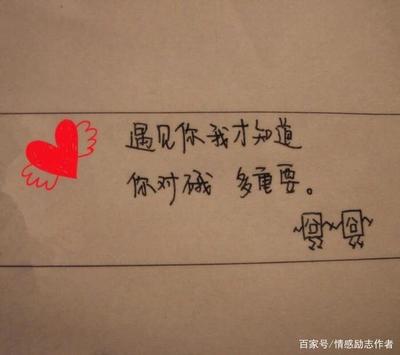 遇见你我才知道
你对硪 多重要。
百家号/情感励志作者